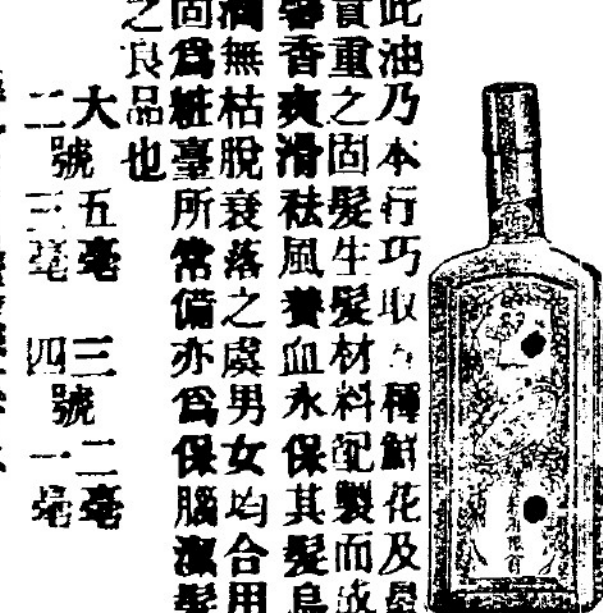 此油乃本行巧取各種鮮花及最
貴重之固髮生髮材料配製而成
馨香爽滑祛風養血永保其髮烏
潤無枯脫衰落之虞男女均合用
固爲粧臺所常備亦爲保腦潔髮
之良品也
大號五毫 三號二毫
二號三毫 四號一毫